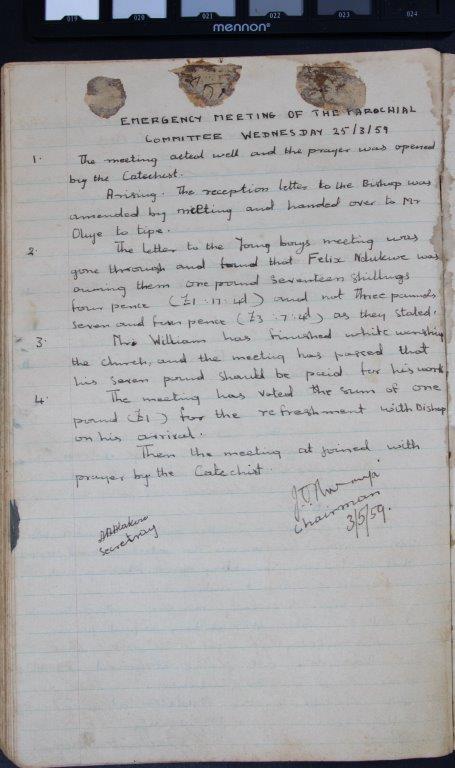 019 020 021 022 023 024
mennon®
EMERGENCY MEETING OF THE PAROCHIAL
COMMITTEE WEDNESDAY 25/3/59
1. The meeting acted well and the prayer was opened
by the Catechist.
Arising. The reception letter to the Bishop was
amended by meeting and handed over to Mr
Oluye to tipe.
2. The letter to the Young boys meeting was
gone through and found that Felix Ndukwe was
owing them one pound seventeen shillings
four pence (£1:17:4d) and not Three pounds
seven and four pence (£3:7:4d) as they stated.
3. Mr William has finished white washing
the church, and the meeting has passed that
his seven pound should be paid for his work
4. The meeting has voted the sum of one
pound (£1) for the refreshment with Bishop
on his arrival.
Then the meeting at joined with
prayer by the Catechist.
Chairman
3/5/59.
Secretray